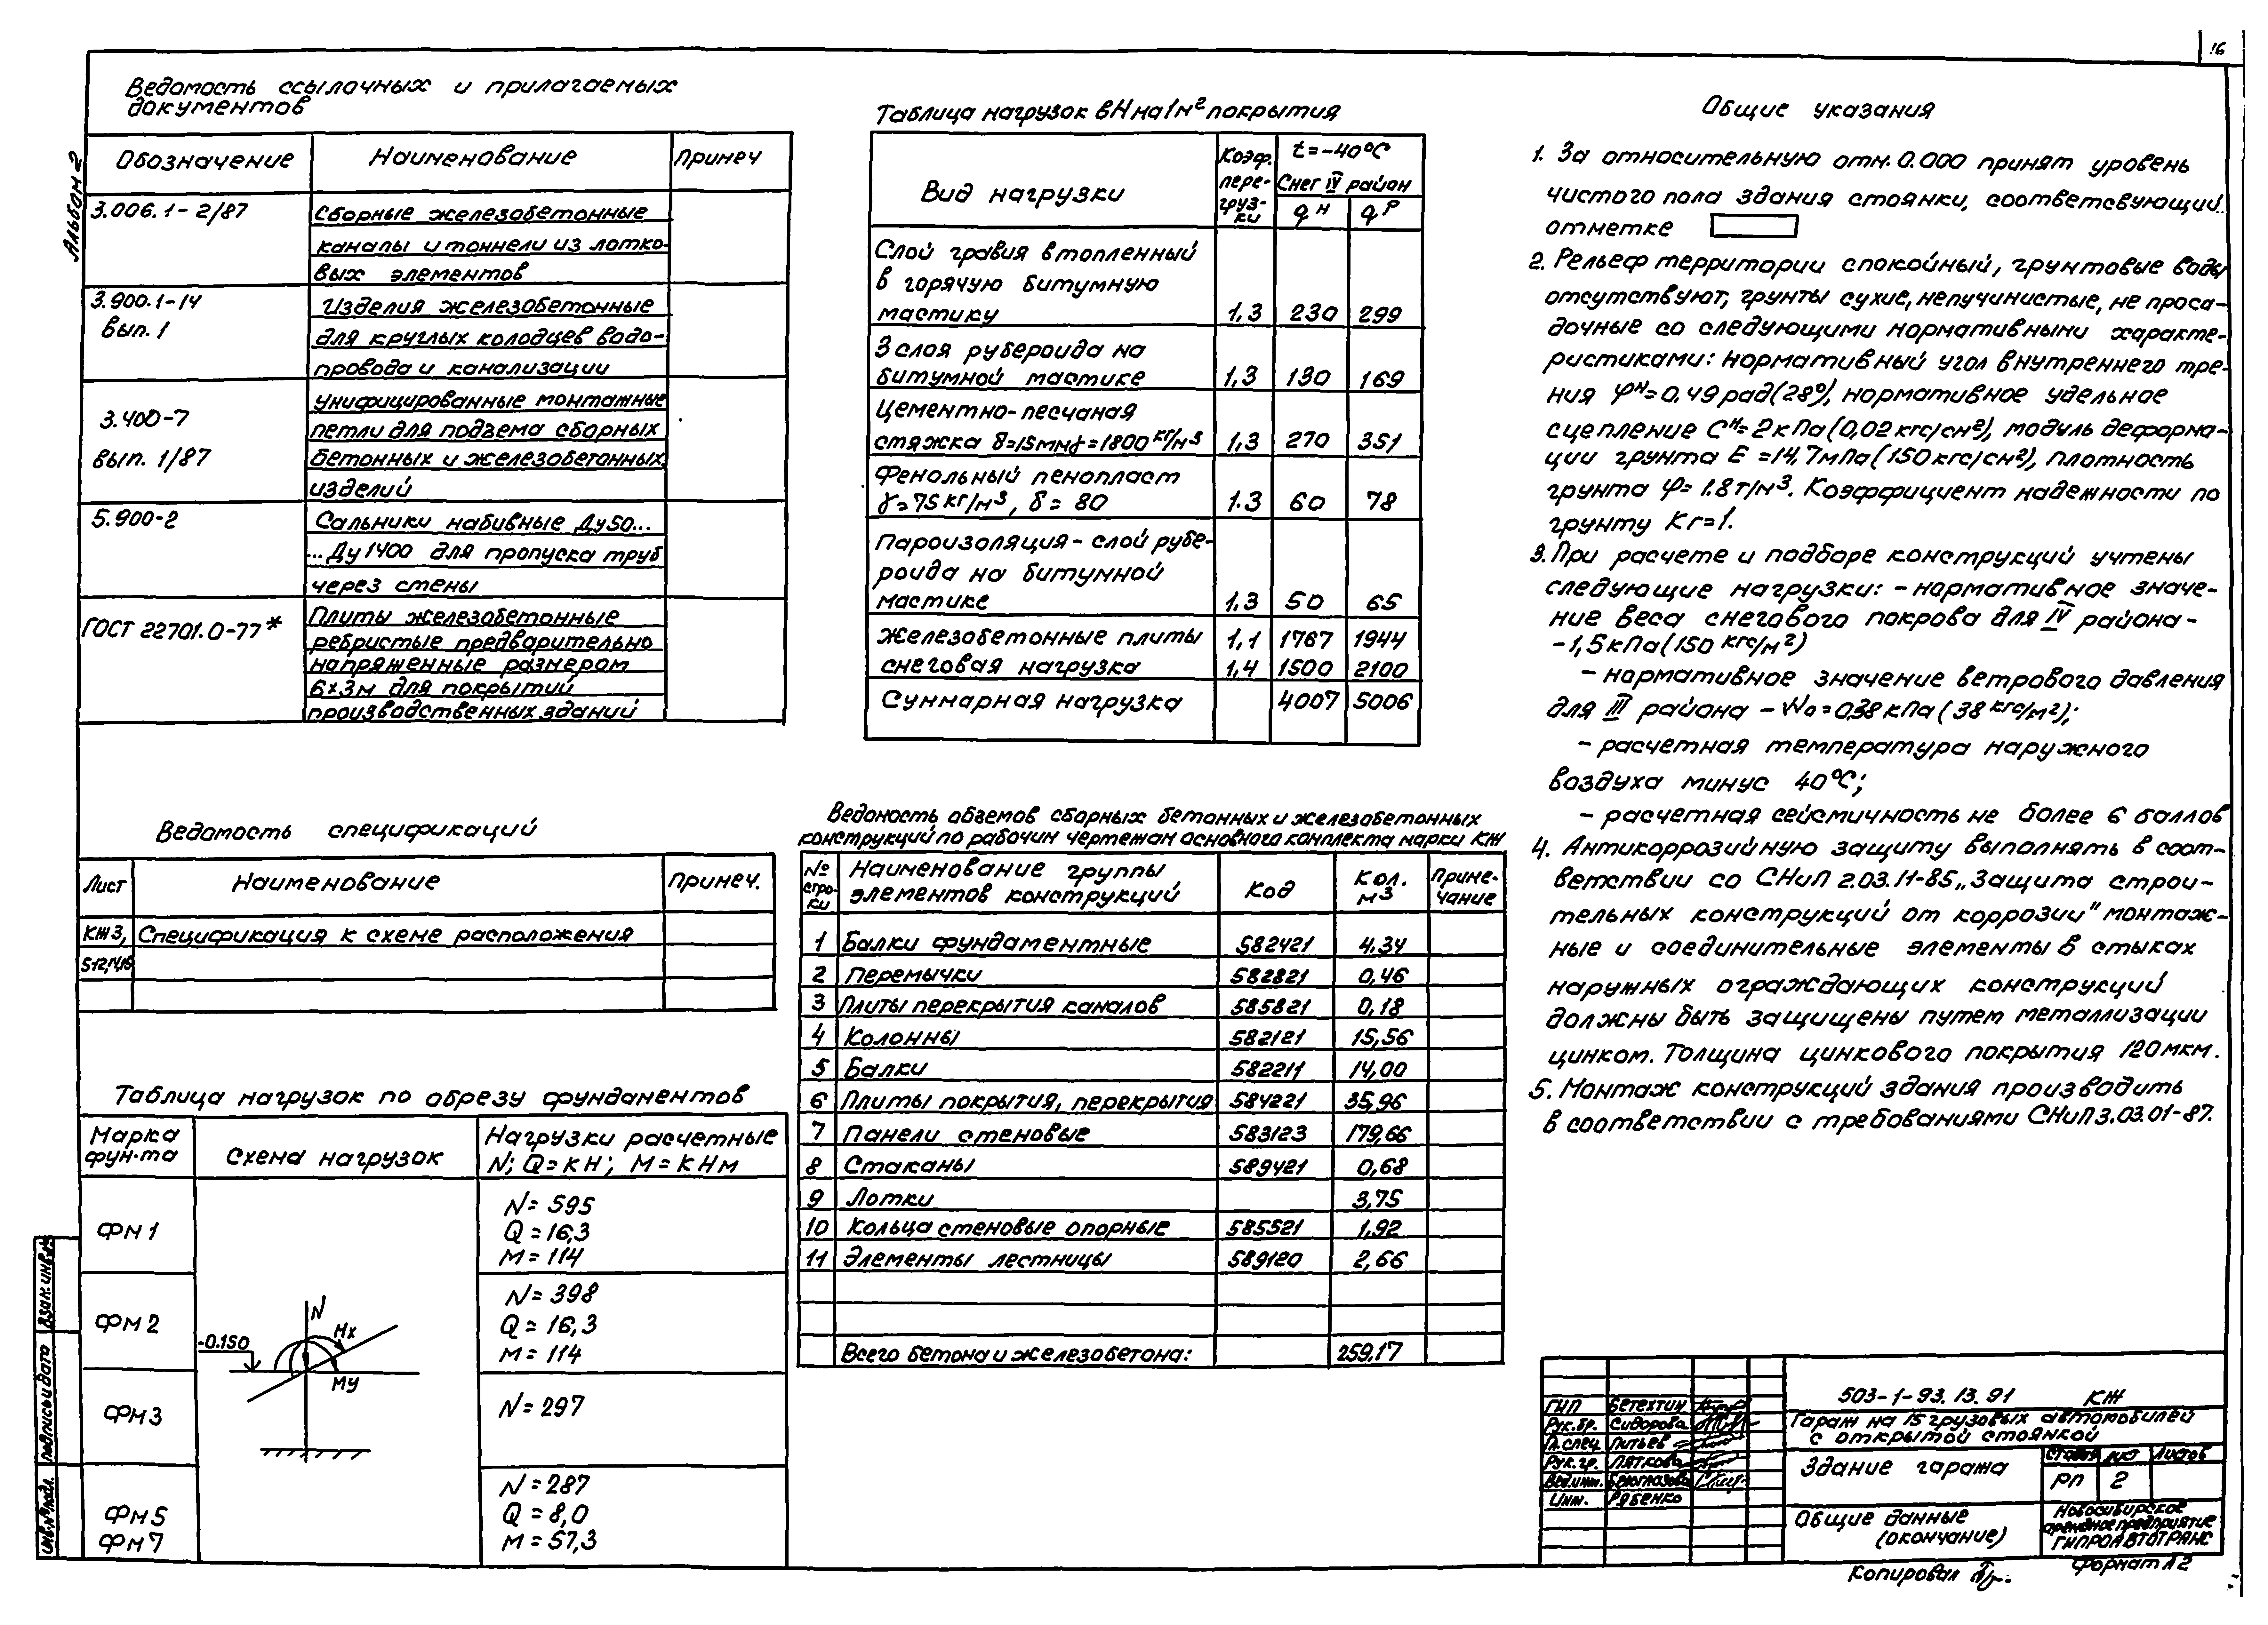 16
Альбом 2
Ведомость ссылочных и прилагаемых
документов
Обозначение Наименование Примеч
3.006.1-2/87 Сборные железобетонные
каналы и тоннели из лотко-
вых элементов
3.900.1-14 Изделия железобетонные
вып. 1 для круглых колодцев водо-
провода и канализации
унифицированные монтажные
3.400-7 петли для подъема сборных
вып. 1/87 бетонных и железобетонных
изделий
5.900-2 Сальники набивные Ду50...
...Ду1400 для пропуска труб
через стены
ГОСТ 22701.0-77* Плиты железобетонные
ребристые предварительно
напряженные размером
6×3м для покрытий
производственных зданий
Ведомость спецификаций
Лист Наименование Примеч.
КЖ3, Спецификация к схеме расположения
5-12,14,16
Таблица нагрузок по обрезу фундаментов
Марка фун-та Схема нагрузок Нагрузки расчетные
N; Q=кН; М=кНм
ФМ1
N=595
Q=16,3
М=114
ФМ2
N=398
Q=16,3
М=114
ФМ3
N=297
ФМ5
ФМ7
N=287
Q=8,0
М=57,3
N
Мх
Му
-0.150
Таблица нагрузок в Н на 1м² покрытия
Вид нагрузки Коэф. пере-груз-ки t=-40°С
Снег IV район
qᴴ qᴾ
Слой гравия втопленный
в горячую битумную
мастику 1,3 230 299
3 слоя рубероида на
битумной мастике 1,3 130 169
Цементно-песчаная
стяжка δ=15мм γ=1800кг/м³ 1,3 270 351
Фенольный пенопласт
γ=75кг/м³, δ=80 1.3 60 78
Пароизоляция-слой рубе-
роида на битумной
мастике 1,3 50 65
Железобетонные плиты 1,1 1767 1944
снеговая нагрузка 1,4 1500 2100
Суммарная нагрузка 4007 5006
Ведомость объемов сборных бетонных и железобетонных
конструкций по рабочим чертежам основного комплекта марки КЖ
№ стро-ки Наименование группы элементов конструкций Код Кол. м³ Приме-чание
1 Балки фундаментные 582421 4.34
2 Перемычки 582821 0,46
3 Плиты перекрытия каналов 585821 0,18
4 Колонны 582121 15,56
5 Балки 582211 14,00
6 Плиты покрытия, перекрытия 584221 35,96
7 Панели стеновые 583123 179,66
8 Стаканы 589421 0,68
9 Лотки 3,75
10 Кольца стеновые опорные 585521 1,92
11 Элементы лестницы 589120 2,66
Всего бетона и железобетона: 259,17
Общие указания
1. За относительную отм. 0.000 принят уровень
чистого пола здания стоянки, соответсвующий
отметке
2. Рельеф территории спокойный, грунтовые воды
отсутствуют, грунты сухие, непучинистые, не проса-
дочные со следующими нормативными характе-
ристиками: нормативный угол внутреннего тре-
ния φᴴ=0.49рад(28°), нормативное удельное
сцепление Сᴴ=2кПа(0,02кгс/см²), модуль деформа-
ции грунта Е=14,7мПа(150кгс/см²), плотность
грунта φ=1.8т/м³. Коэффициент надежности по
грунту Кг=1.
3. При расчете и подборе конструкций учтены
следующие нагрузки: -нормативное значе-
ние веса снегового покрова для IV района-
-1,5кПа(150кгс/м²)
- нормативное значение ветрового давления
для III района - Wо=0,38кПа(38кгс/м²);
- расчетная температура наружного
воздуха минус 40°С;
- расчетная сейсмичность не более 6 баллов
4. Антикоррозийную защиту выполнять в соот-
ветствии со СНиП 2.03.11-85„Защита строи-
тельных конструкций от коррозии" монтаж-
ные и соединительные элементы в стыках
наружных ограждающих конструкций
должны быть защищены путем металлизации
цинком. Толщина цинкового покрытия 120мкм.
5. Монтаж конструкций здания производить
в соответствии с требованиями СНиП3.03.01-87.
503-1-93.13.91 КЖ
Гараж на 15 грузовых автомобилей
с открытой стоянкой
ГИП Бетехтин
Рук.бр. Сидорова
Гл.спец. Питьев
Рук.гр. Пяткова
Вед.инж. Белоглазова
Инж. Рябенко
Здание гаража
Стадия Лист Листов
РП 2
Общие данные
(окончание)
Новосибирское
арендное предприятие
ГИПРОАВТОТРАНС
Копировал
Формат А2
Взам.инв.№
Подпись и дата
Инв.№ подл.